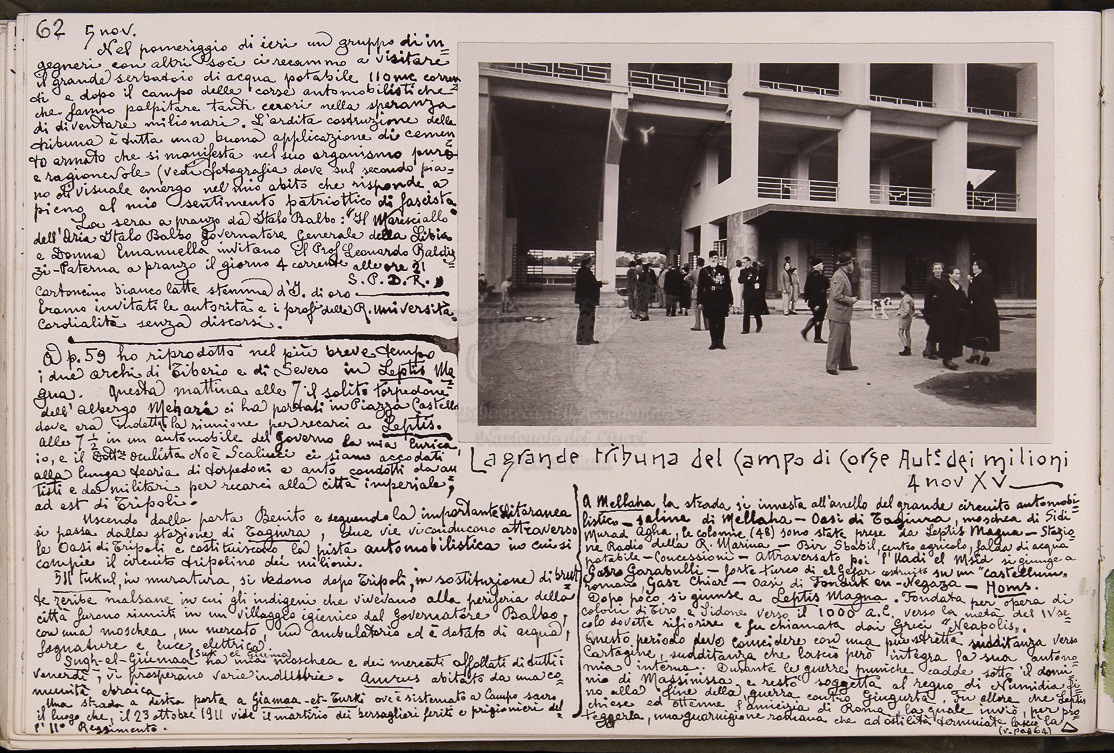 62 5 nov.
Nel pomeriggio di ieri un gruppo di in=
gegneri con altri soci ci recammo a visitare
il grande serbatoio di acqua potabile 110 mc
di e dopo il campo delle corse automobilistiche
che fanno palpitare tanti cuori nella speranza
di diventare milionari. L'ardita costruzione della
tribuna è tutta una buona applicazione di cemen
to armato che si manifesta nel suo organismo puro
e ragionevole (vedi fotografia dove sul secondo pia=
no di visuale emergo nel mio abito che risponde a
pieno al mio sentimento patriottico di fascista.
La sera a pranzo da Italo Balbo: "Il Maresciallo
dell'Aria Italo Balbo Governatore Generale della Libia
e Donna Emanuella invitano il Prof. Leonardo
Paterna a pranzo il giorno 4 corrente alle ore 21
S. P. D. R. "
cartoncino bianco latte stemma d'I. di oro
Erano invitati le autorità e i profⁱ della R. Università
Cordialità senza discorsi.
A p. 59 ho riprodotto nel più breve tempo
i due archi di Tiberio e di Severo in Leptis Ma
gna. Questa mattina alle 7 il solito torpedone
dell'albergo Mehari ci ha portati in Piazza Castello
dove era indetta la riunione per recarci a Leptis.
Alle 7 ½ in un automobile del Governo la mia Enrica
io, e il Dott. oculista Noè Scalinci ci siamo accodati
alla lunga teoria di torpedoni e auto condotti da au
tisti e da militari per recarci alla città imperiale,
ad est di Tripoli.
Uscendo dalla porta Benito e seguendo la importante litoranea
si passa dalla stazione di Tagiura, due vie vi conducono attraverso
le Oasi di Tripoli e costituiscono la pista automobilistica in cui si
compie il circuito tripolino dei milioni.
511 tukul, in muratura, si vedono dopo Tripoli, in sostituzione di brut
te zeribe malsane in cui gli indigeni che vivevano alla periferia della
città furono riuniti in un villaggio igienico dal Governatore Balbo,
con una moschea, un mercato, un ambulatorio ed è dotato di acqua,
fognature e luce elettrica.
Sugh-el-Giumaa ha una moschea e dei mercati affollati di tutti i
venerdì; vi prosperano varie industrie. Amrus abitato da una co=
munità ebraica.
Una strada a destra porta a Giamaa-et-Turki ove è sistemato a Campo sacro
il luogo che, il 23 ottobre 1911 vide il martirio dei bersaglieri feriti e prigionieri del=
l'11° Reggimento.
La grande tribuna del Campo di Corse Autᵉ dei milioni
4 nov XV
A Mellaha la strada si innesta all'anello del grande circuito automobi
listico – saline di Mellaha – Oasi di Tagiura, moschea di Sidi
Murad Agha, le colonne (48) sono state prese da Leptis Magna – Stazio
ne Radio della R. Marina – Bir Sbobil, centro agricolo, falda di acqua
potabile – Concessioni – Attraversato poi l'Uadi el Msid si giunge a
Gasr Garabulli – forte turco di el Gefar costruito su un "castellum"
romano Gasr Chiar – Oasi di Fonduk en-Negazé – Homs.
Dopo poco si giunse a Leptis Magna. Fondata per opera di
coloni di Tiro e Sidone verso il 1000 a.C. verso la metà del IV se
colo dovette rifiorire e fu chiamata dai Greci "Neapolis".
Questo periodo devo coincidere con una più stretta sudditanza verso
Cartagine, sudditanza che lasciò però integra la sua autono=
mia interna. Durante le guerre puniche cadde sotto il domi=
nio di Massinissa, e restò soggetta al regno di Numidia fi=
no alla fine della guerra contro Giugurta. Fu allora che Leptis
chiese ed ottenne l'amicizia di Roma, la quale inviò, per pro
teggerla, una guarnigione romana che ad ostilità terminate lasciò la
(v. pag 64)